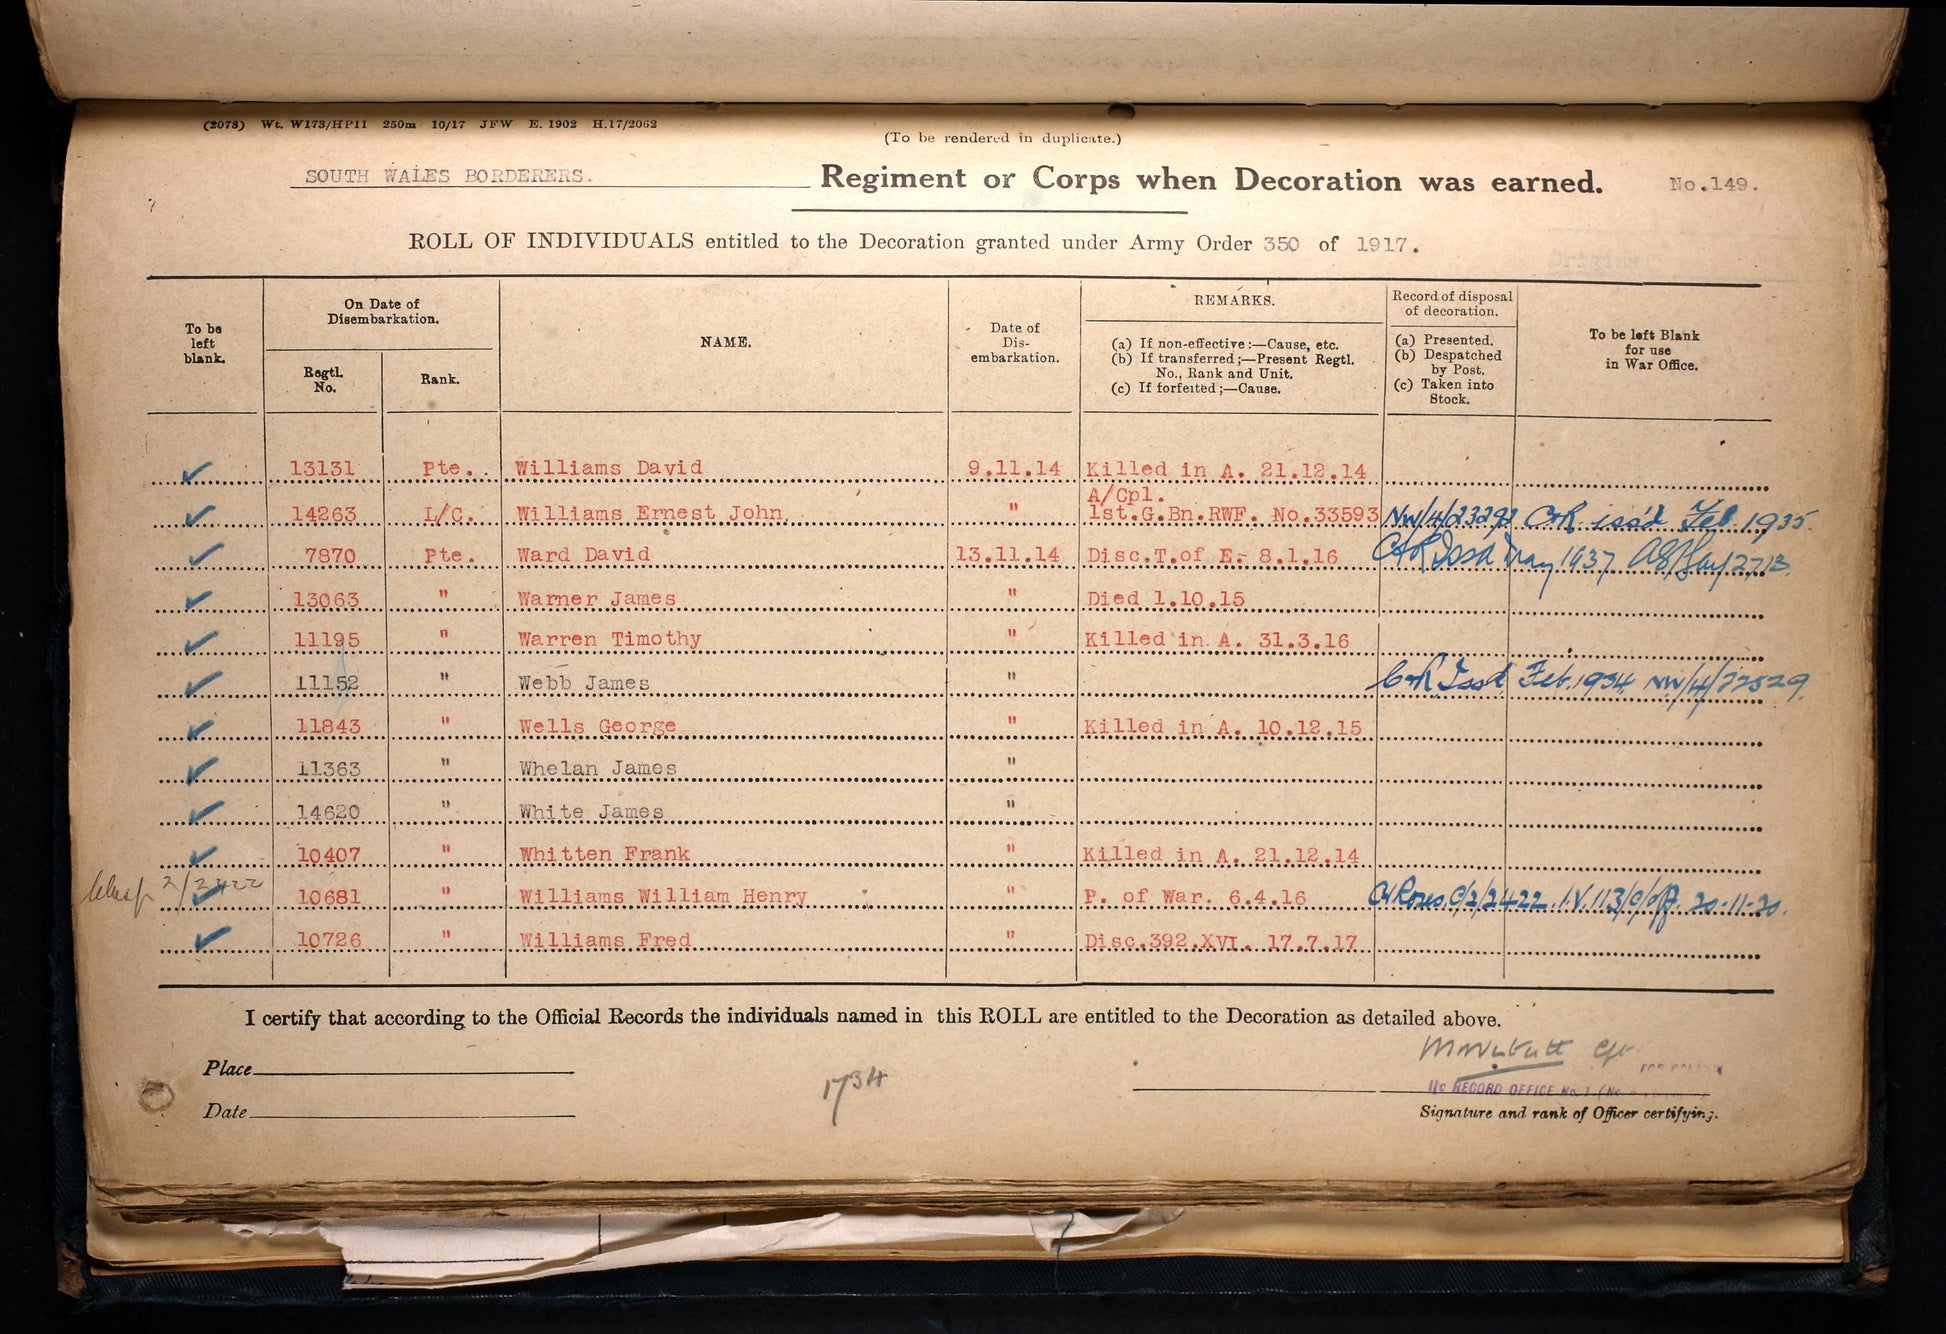 (2078) Wt. W173/HP11 250m 10/17 JFW E. 1902 H.17/2062
(To be rendered in duplicate.)
SOUTH WALES BORDERERS. Regiment or Corps when Decoration was earned. No.149.
ROLL OF INDIVIDUALS entitled to the Decoration granted under Army Order 350 of 1917.
To be left blank.
On Date of Disembarkation.
Regtl. No.
Rank.
NAME.
Date of Dis-embarkation.
REMARKS.
(a) If non-effective:—Cause, etc.
(b) If transferred;—Present Regtl. No., Rank and Unit.
(c) If forfeited;—Cause.
Record of disposal of decoration.
(a) Presented.
(b) Despatched by Post.
(c) Taken into Stock.
To be left Blank for use in War Office.
13131 Pte. Williams David 9.11.14 Killed in A. 21.12.14
A/Cpl.
14263 L/C. Williams Ernest John " 1st.G.Bn.RWF. No.33593 NW/4/23292 issd Feb 1935
7870 Pte. Ward David 13.11.14 Disc.T.of E.- 8.1.16 Issd May 1937
13063 " Warner James " Died 1.10.15
11195 " Warren Timothy " Killed in A. 31.3.16
11152 " Webb James " Issd Feb. 1934 NW/4/22529
11843 " Wells George " Killed in A. 10.12.15
11363 " Whelan James "
14620 " White James "
10407 " Whitten Frank " Killed in A. 21.12.14
Clasp 2/2422 10681 " Williams William Henry " P. of War. 6.4.16 20-11-20.
10726 " Williams Fred " Disc.392.XVI. 17.7.17
I certify that according to the Official Records the individuals named in this ROLL are entitled to the Decoration as detailed above.
Place
Date
1734
RECORD OFFICE No. 1
Signature and rank of Officer certifying.